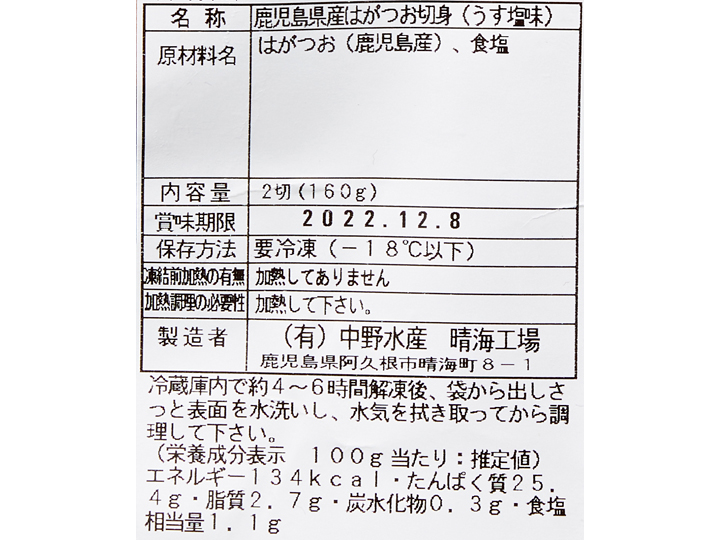 名称 鹿児島県産はがつお切身（うす塩味）
原材料名 はがつお（鹿児島産）、食塩
内容量 2切(160g)
賞味期限 2022.12.8
保存方法 要冷凍（－18℃以下）
凍結前加熱の有無 加熱してありません
加熱調理の必要性 加熱して下さい。
製造者 （有）中野水産 晴海工場
鹿児島県阿久根市晴海町8－1
冷蔵庫内で約4～6時間解凍後、袋から出しさ
っと表面を水洗いし、水気を拭き取ってから調
理して下さい。
（栄養成分表示 100g当たり：推定値）
エネルギー134kcal・たんぱく質25.
4g・脂質2.7g・炭水化物0.3g・食塩
相当量1.1g